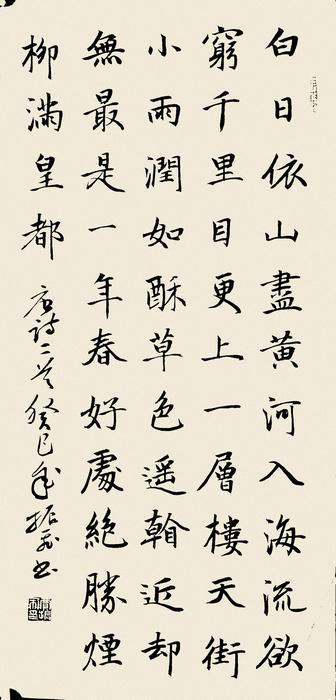 白日依山盡黃河入海流欲
窮千里目更上一層樓天街
小雨潤如酥草色遥翰近却
無最是一年春好處絕勝煙
柳滿皇都
唐诗二首癸巳年振书